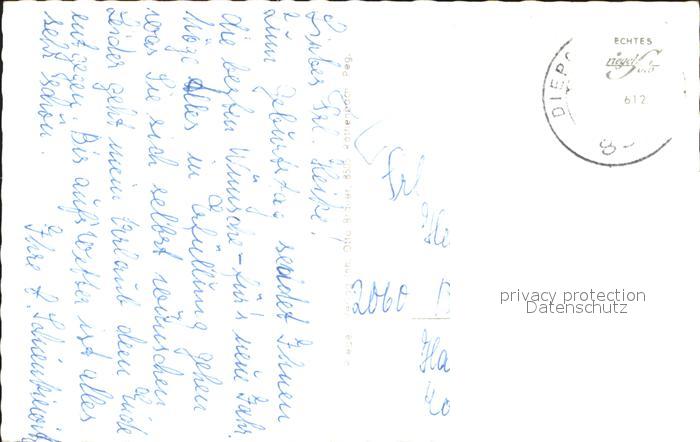 Liebes Frl. Heike!
Zum Geburtstag sendet Ihnen
die besten Wünsche - für's neue Jahr.
Möge alles in Erfüllung gehen
was Sie sich selbst wünschen
Leider geht mein Urlaub dem Ende
entgegen. Bis auf's Wetter ist alles
sehr schön.
Ihre
Frl
He
2060
Ha
ECHTES
612
DIEP
privacy protection
Datenschutz